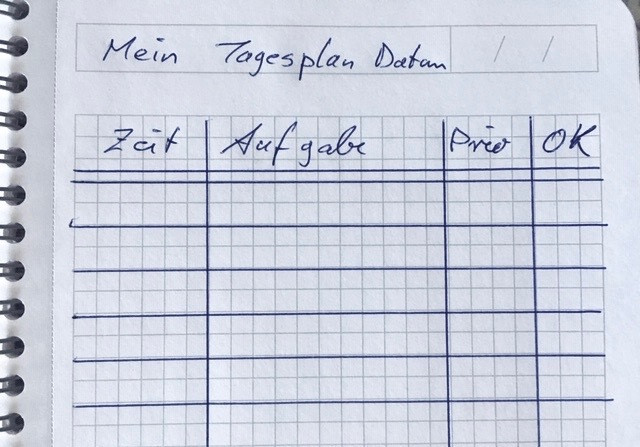 Mein Tagesplan Datum / /
Zeit Aufgabe Prio OK